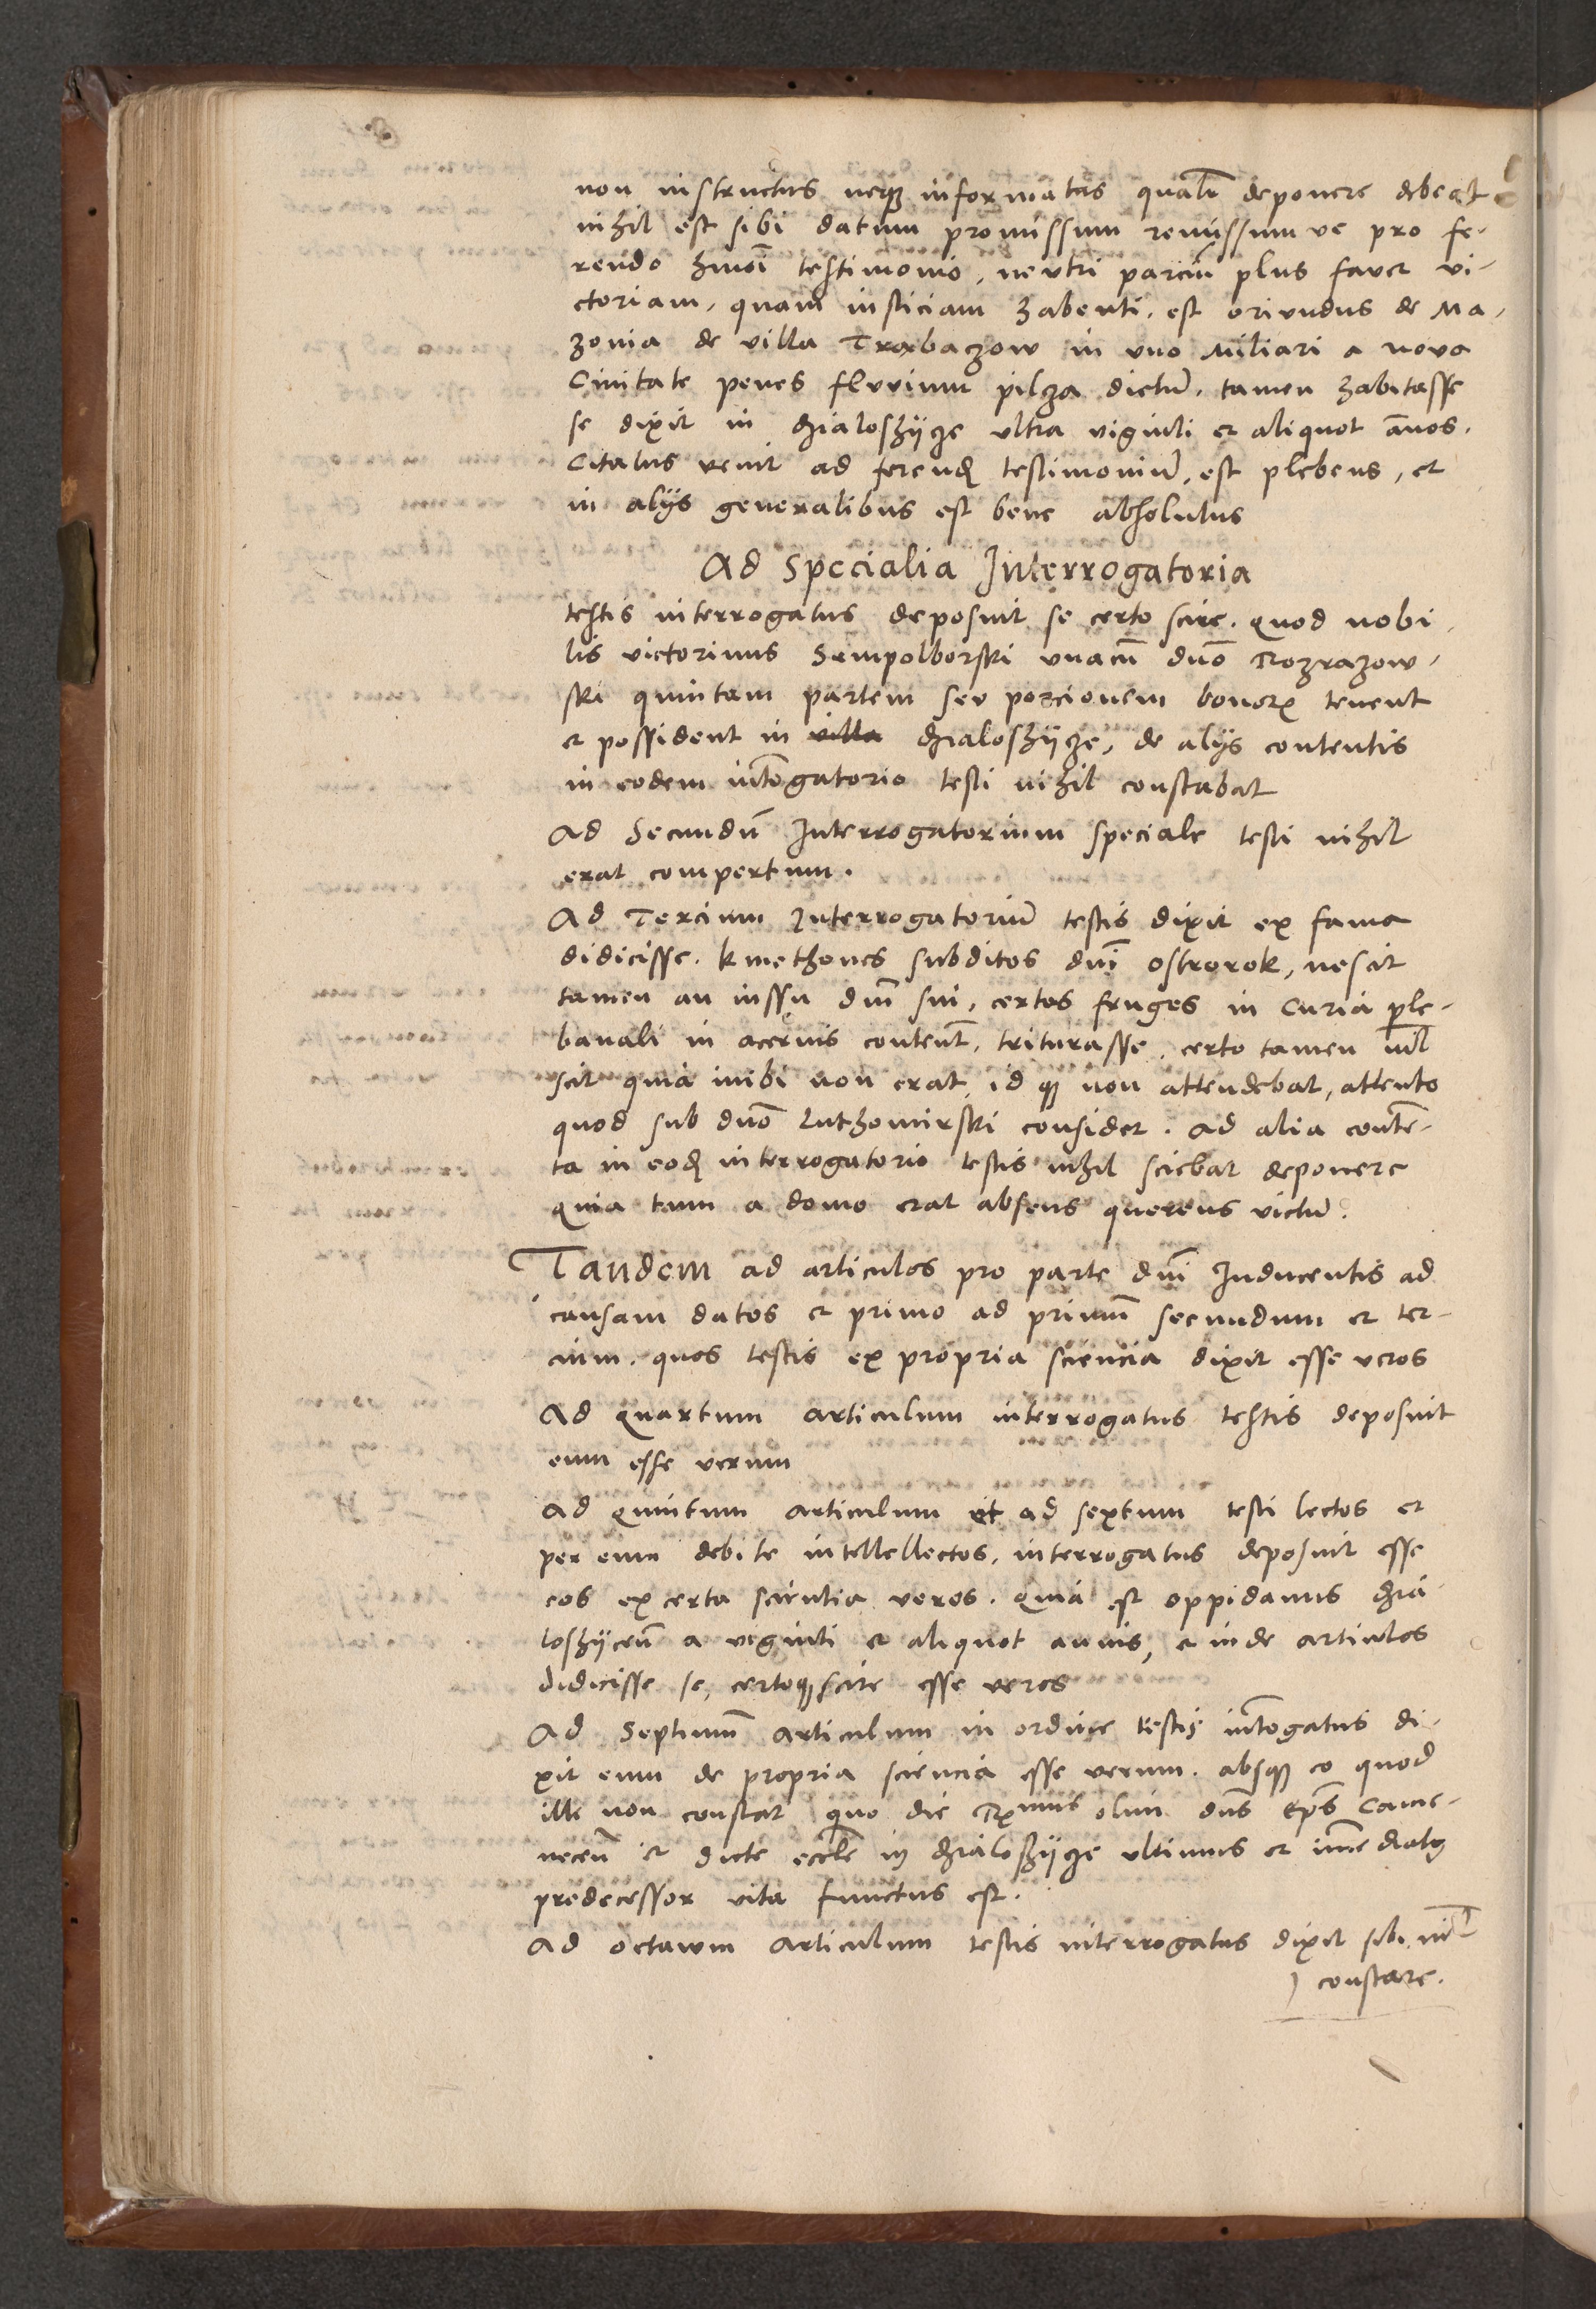 non instructus neqꝫ informatus qualr̄ deponere debeat
nihil est sibi datum promissum remissumve pro fe-
rendo hmōi testimonio, neutri parciū plus favet vi-
ctoriam, quam iusticiam habenti. est oriundus de Ma-
zovia de villa Trxbaczow in uno Miliari a nova
Civitate penes fluvium pilcza dictū. tamen habitasse
se dixit in dzialoshijcze ultra viginti et aliquot ānos.
Citatus venit ad ferendū testimoniū, est plebeus, et
in alijs generalibus est bene absolutus
Ad Specialia Interrogatoria
testis interrogatus deposuit se certo scire. quod nobi-
lis victorinus Sempolborski unacū dnō Rozrazow-
ski quintam partem seu porcionem bonorꝝ tenent
et possident in villa dzialoshijcze, de alijs contentis
in eodem intrōgatorio testi nihil constabat
Ad Secundū Interrogatorium speciale testi nihil
erat compertum.
Ad Tercium Interrogatoriū testis dixit ex fama
didicisse. kmethones subditos dnī ostrorok, nescit
tamen an iussu dnī sui, certas fruges in Curia ple-
banali in acervis content̄. triturasse, certo tamen nīl
scit quia inibi non erat, id qꝫ non attendebat, attento
quod sub dnō Luthomirski consideτ. Ad alia contē-
ta in eodē interrogatorio testis nihil sciebat deponere
quia tum a domo erat absens querens victū.
Tandem ad articulos pro parte dnī Inducentis ad
causam datos et primo ad primū secundum et ter-
cium. quos testis ex propria sciencia dixit esse veros
Ad quartum articulum interrogatus testis deposuit
eum esse verum
Ad Quintum articulum et ad sextum testi lectos et
per eum debite intellellectos, interrogatus deposuit esse
eos ex certa scientia veros. quia est oppidanus dzia-
loshijceñ a viginti et aliquot annis, et inde articulos
didicisse se, certoqꝫ scire esse veros
Ad Septimū articulum in ordine testis intrōgatus di-
xit eum de propria sciencia esse verum. absqꝫ eo quod
illi non constat quo die Rx̄mus olim dn̄s Ep̄s Came-
neceñ et dicte ecclē in dzialoshijcze ultimus et īmediatꝯ
predecessor vita functus est.
Ad octavum Articulum testis interrogatus dixit sibi nīl
constare.